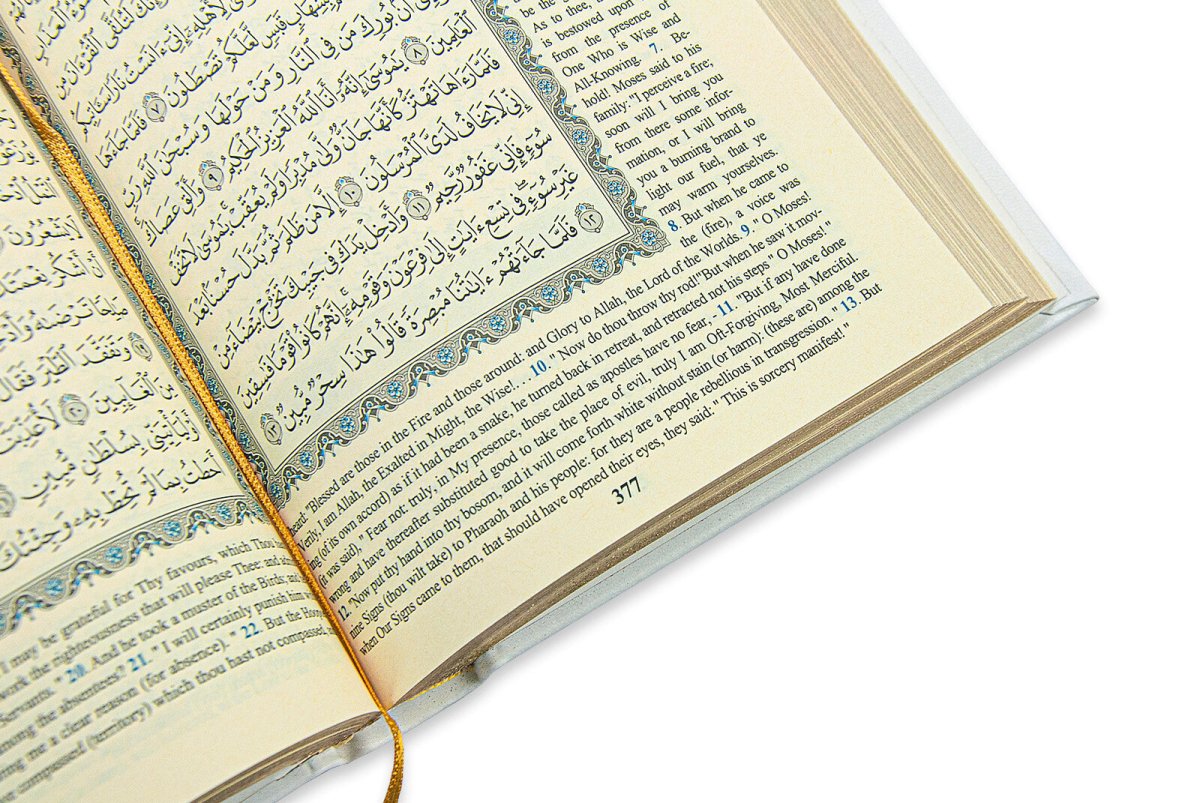 ٱلْقُرْءَانَ مِن
لِأَهْلِهِۦٓ إِنِّىٓ ءَانَسْتُ نَارًا سَـَٔاتِيكُم
بِشِهَابٍ قَبَسٍ لَّعَلَّكُمْ تَصْطَلُونَ ٧ فَلَمَّا جَآءَهَا
أَنۢ بُورِكَ مَن فِى ٱلنَّارِ وَمَنْ حَوْلَهَا وَسُبْحَٰنَ ٱللَّهِ رَبِّ
ٱلْعَٰلَمِينَ ٨ يَٰمُوسَىٰٓ إِنَّهُۥٓ أَنَا ٱللَّهُ ٱلْعَزِيزُ ٱلْحَكِيمُ ٩ وَأَلْقِ عَصَاكَ
فَلَمَّا رَءَاهَا تَهْتَزُّ كَأَنَّهَا جَآنٌّ وَلَّىٰ مُدْبِرًا وَلَمْ يُعَقِّبْ يَٰمُوسَىٰ لَا تَخَفْ
إِنِّى لَا يَخَافُ لَدَىَّ ٱلْمُرْسَلُونَ ١٠ إِلَّا مَن ظَلَمَ ثُمَّ بَدَّلَ حُسْنًۢا بَعْدَ
سُوٓءٍ فَإِنِّى غَفُورٌ رَّحِيمٌ ١١ وَأَدْخِلْ يَدَكَ فِى جَيْبِكَ تَخْرُجْ بَيْضَآءَ مِنْ
غَيْرِ سُوٓءٍ فِى تِسْعِ ءَايَٰتٍ إِلَىٰ فِرْعَوْنَ وَقَوْمِهِۦٓ إِنَّهُمْ كَانُوا۟ قَوْمًا فَٰسِقِينَ
١٢ فَلَمَّا جَآءَتْهُمْ ءَايَٰتُنَا مُبْصِرَةً قَالُوا۟ هَٰذَا سِحْرٌ مُّبِينٌ ١٣
be the
As to thee,
is bestowed upon
from the presence of
One Who is Wise and
All-Knowing. 7. Be-
hold! Moses said to his
family: "I perceive a fire;
soon will I bring you
from there some infor-
mation, or I will bring
you a burning brand to
light our fuel, that ye
may warm yourselves.
8. But when he came to
the (fire), a voice was
heard: "Blessed are those in the Fire and those around: and Glory to Allah, the Lord of the Worlds. 9. " O Moses!
Verily, I am Allah, the Exalted in Might, the Wise!. . . 10. " Now do thou throw thy rod!"But when he saw it mov-
ing (of its own accord) as if it had been a snake, he turned back in retreat, and retracted not his steps " O Moses! "
(it was said)," Fear not: truly, in My presence, those called as apostles have no fear, - 11. "But if any have done
wrong and have thereafter substituted good to take the place of evil, truly I am Oft-Forgiving, Most Merciful.
12. "Now put thy hand into thy bosom, and it will come forth white without stain (or harm): (these are) among the
nine Signs (thou wilt take) to Pharaoh and his people: for they are a people rebellious in transgression. " 13. But
when Our Signs came to them, that should have opened their eyes, they said: " This is sorcery manifest! "
377
أَنْ أَشْكُرَ نِعْمَتَكَ
صَٰلِحًا تَرْضَىٰهُ
وَتَفَقَّدَ ٱلطَّيْرَ فَقَالَ
مِنَ ٱلْغَآئِبِينَ ٢٠
بِسُلْطَٰنٍ مُّبِينٍ
أَحَطتُ بِمَا لَمْ تُحِطْ بِهِۦ وَجِئْتُكَ
I may be grateful for Thy favours, which Thou
work the righteousness that will please Thee: and
Servants. " 20. And he took a muster of the Birds; and
among the absentees? 21. " I will certainly punish him
me a clear reason (for absence). " 22. But the
compassed (territory) which thou hast not compassed,